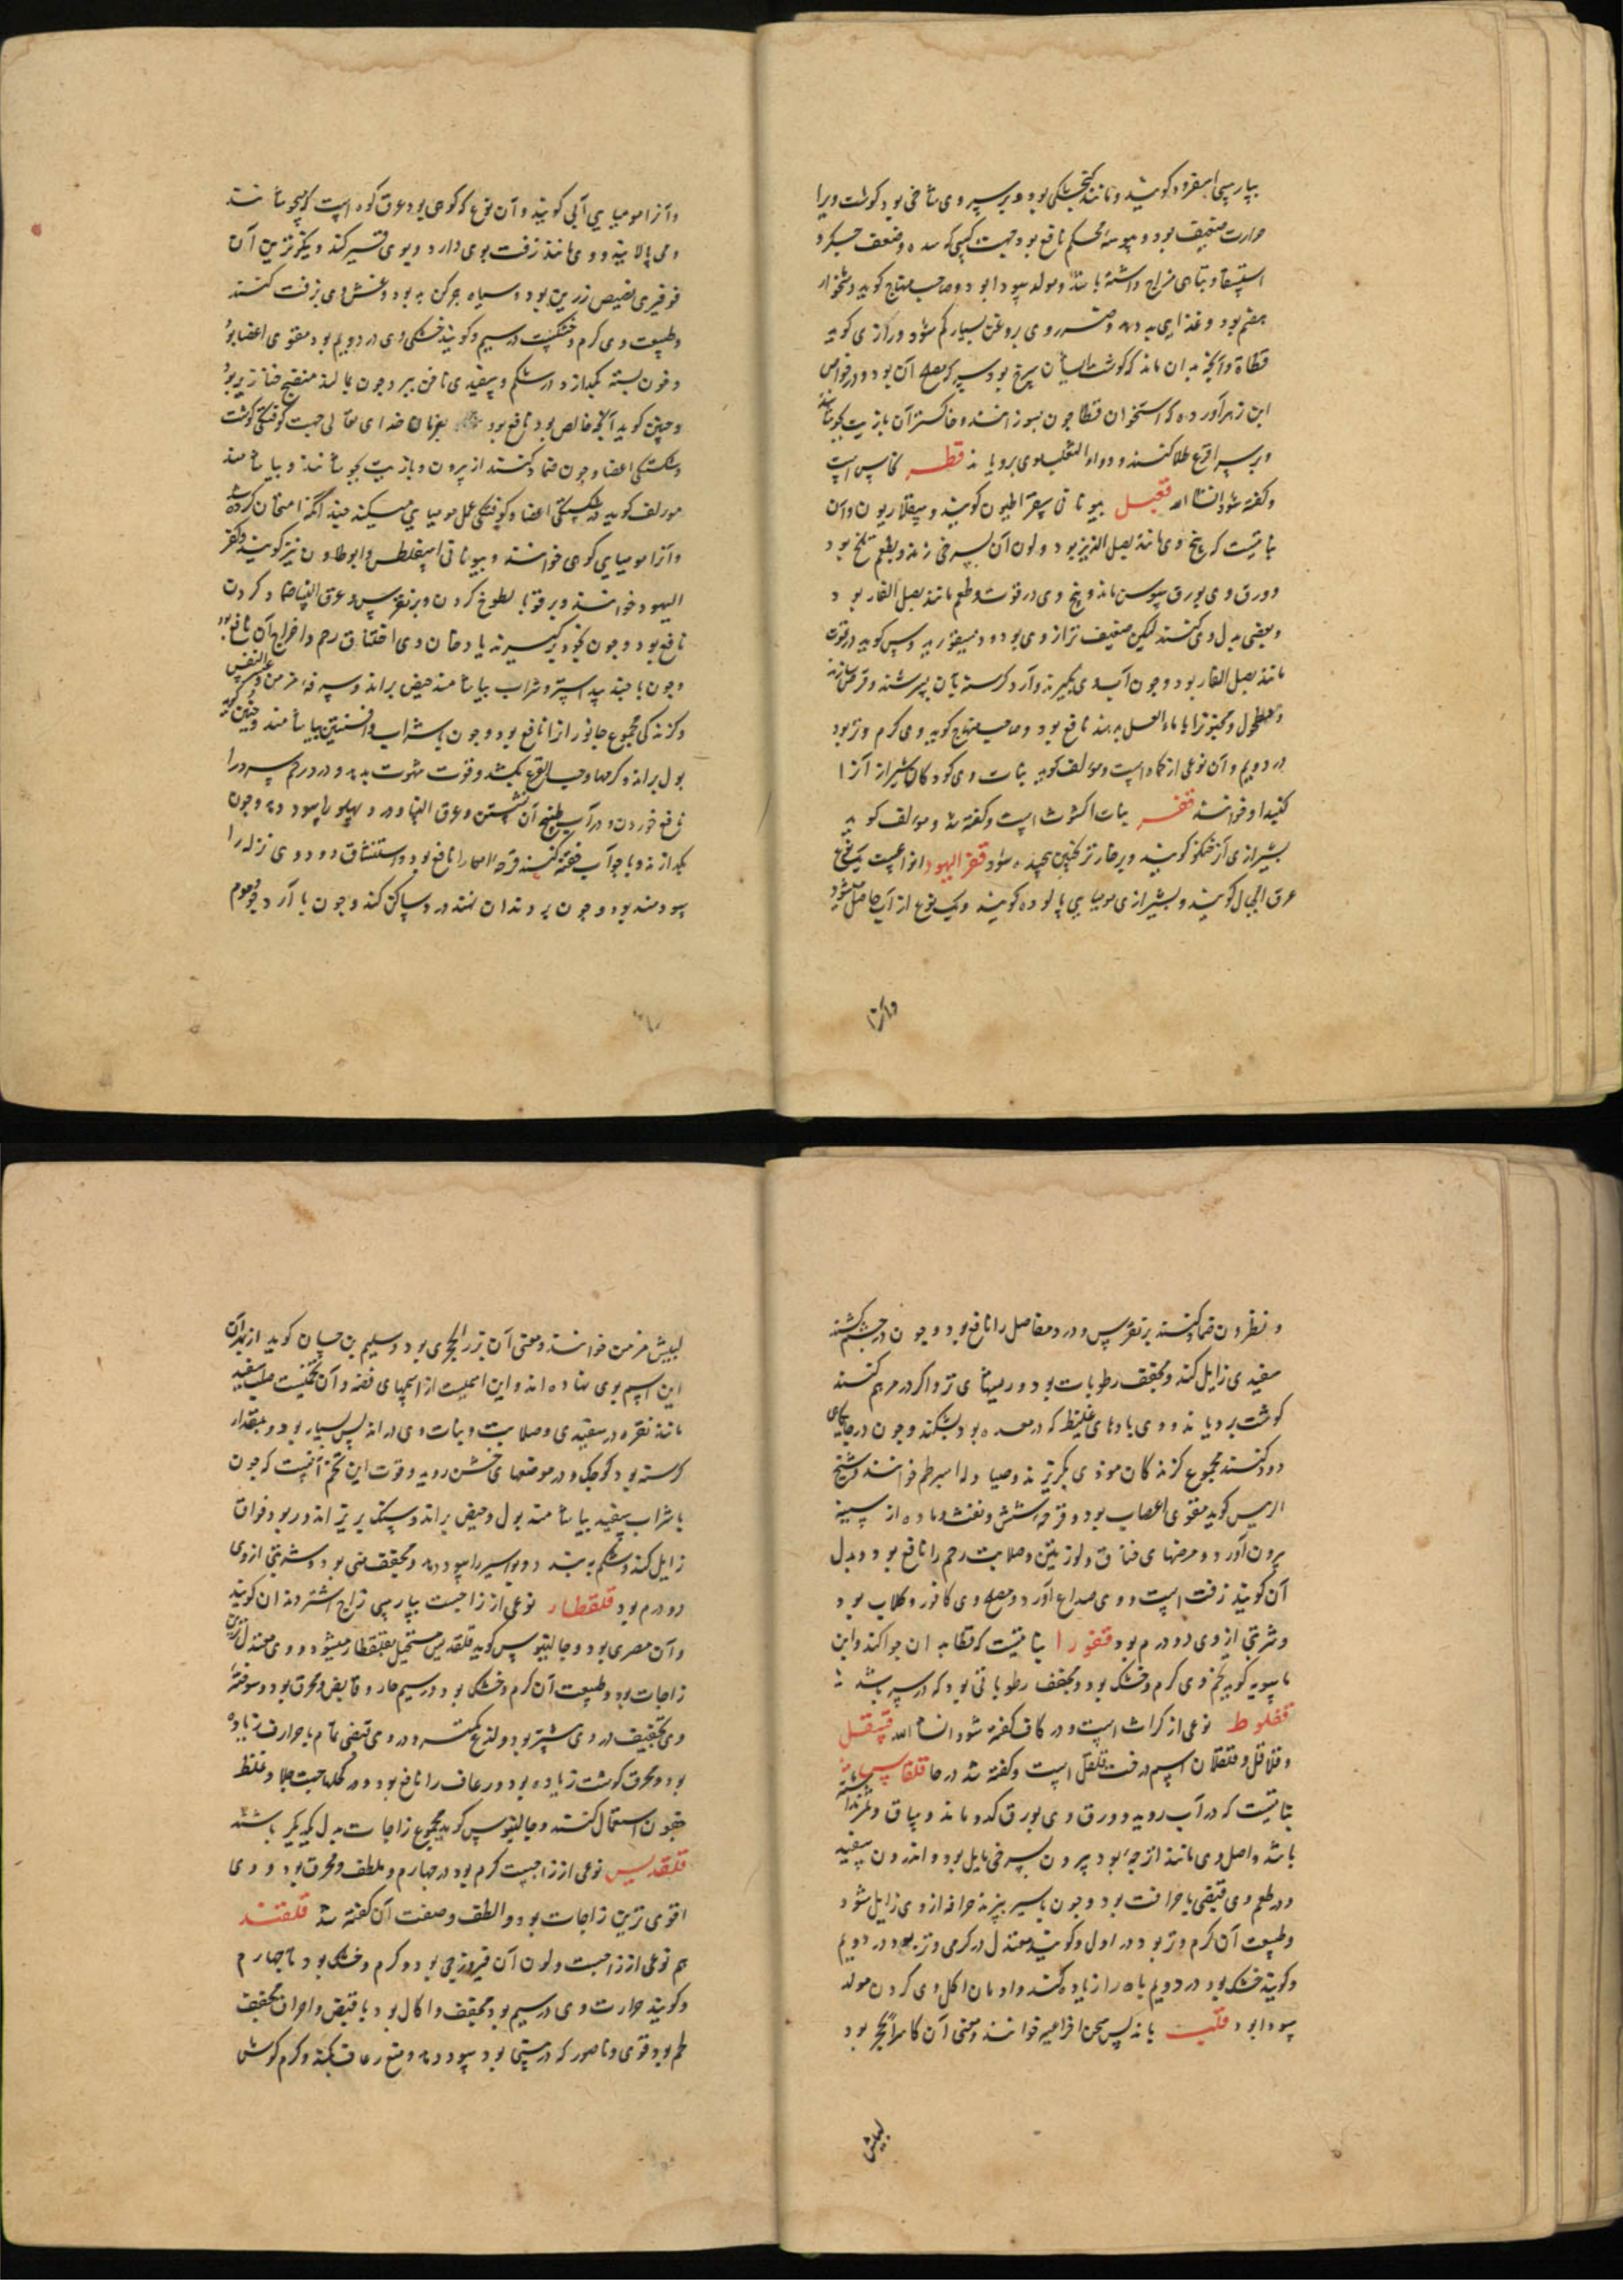 بپارسی اسفرود کویند و مانند کنجشکی بود و بر سر وی شاخی بود کوشت ویرا
حرارت ضعیف بود و پیوسته محکم نافع بود جهت کسی که سده و ضعف جکر و
استسقا و تباهی مزاج داشته باشد و مولد سودا بود و صاحب منهاج کوید دشخوار
هضم بود و غذای بد دهد و مضرت وی بروغن بسیار کم شود و رازی کوید
قطاة و آنچه بدان ماند که کوشت ایشان سرخ بود سرکه مصلح آن بود و در خواص
ابن زهر آورده که استخوان قطا چون بسوزانند و خاکستر آن با زیت بجوشانند
و بر سر اقرع طلا کنند و داء الثعلب موی برویاند قطر نحاس است
و کفته شود انشا الله قعبل بیونانی سقراطیون کویند و سقلاریون و آن
نباتیست که بیخ وی مانند بصل الزیز بود و لون آن بسرخی زند و بطعم تلخ بود
و ورق وی بورق سوسن ماند و بیخ وی در قوت و طعم مانند بصل الفار بود
و بعضی بدل وی کنند لیکن ضعیف تر از وی بود و دیسقوریدوس کوید در قوت
مانند بصل الفار بود و چون آب وی بکیرند و آرد کرسنه بآن بسرشند و قرص سازند
و مطحول و مجنونرا با ماء العسل بدهند نافع بود و صاحب منهاج کوید وی کرم و تر بود
در دویم و آن نوعی از کماه است و مولف کوید نبات وی کودکان شیراز آنرا
کنیدا و خوانند قفر نبات اکشوث است و کفته شد و مولف کوید
بشیرازی آنرا خنکو کویند و بر خار ترنجبین پیچیده شود قفر الیهود انواعست یک نوع
عرق الجبال کویند و بشیرازی مومیایی پالوده کویند و یک نوع از آب حاصل میشود
وآنرا
وآنرا مومیایی آبی کویند و آن نوع که کوهی بود عرق کوه است که میجوشانند
و می پالایند و وی مانند زفت بوی دارد و بوی قیر کند و نیکوترین آن
فرفیری بصیص زرین بود و سیاه چرکن بد بود و غش وی بزفت کنند
و طبیعت وی کرم و خشکست در سیم و کویند خشکی وی در دویم بود مقوی اعضا بود
و خون بسته بکدازد در شکم و سفیدی ناخن ببرد چون بمالند منضج خنازیر بود
و حنین کوید آنچه خالص بود نافع بود بفرمان خدای تعالی جهت کوفتکی کوشت
و شکستکی اعضا و چون ضماد کنند از بیرون و بازیت بجوشانند و بیاشامند
مولف کوید در شکستکی اعضا و کوفتکی عمل مومیایی میکند چند آنکه امتحان کرده شد
وآنرا مومیایی کوهی خوانند و بیونانی اسفلطس و ابوطاون نیز کویند و قفر
الیهود خوانند و بر قوبا لطوخ کردن و بر نقرس و عرق النسا ضماد کردن
نافع بود و چون بخود برکیرند یا دخان وی اختناق رحم و اخراج آن نافع بود
و چون با جند بیدستر و شراب بیاشامند حیض براند و سرفه مزمن و عسر النفس
و کزندکی مجموع جانورانرا نافع بود و چون با شراب و افسنتین بیاشامند و چنین کوید
بول براند و کرمها و حب القرع بکشد و قوت شهوت بدهد و درد رحم سرد را
نافع خوردن و در آب طبیخ آن نشستن و عرق النسا و درد پهلو را سود دهد و چون
بکدازند و با جوآب حقنه کنند قرحه امعا را نافع بود و استنشاق دود وی نزله را
سودمند بود و چون بر دندان نهند درد ساکن کند و چون با آرد جو و موم
و نطرون ضماد کنند بر نقرس و درد مفاصل را نافع بود و چون در چشم کشند
سفیدی زایل کند و مجفف رطوبات بود و ریشهای تر و اکر در مرهم کنند
کوشت برویاند و وی بادهای غلیظ که در معده بود بشکند و چون در جایکاهی
دود کنند مجموع کزندکان موذی بکریزند و صیادله امبرطم خوانند و شیخ
الریس کوید مقوی اعصاب بود و قرحه شش و نفث و ماده از سینه
بیرون آورد و مرضهای خناق و لوزتین و صلابت رحم را نافع بود و بدل
آن کویند زفت است و وی صداع آورد و مصلح وی کافور و کلاب بود
و شربتی از وی دو درم بود قنفورا نباتیست که قطا بدان چرا کند و ابن
ماسویه کوید تخم وی کرم و خشک بود و مجفف رطوباتی بود که در سر باشد
قفلوط نوعی از کراث است و در کاف کفته شود انشا الله قلقل
و قلاقل و قلقلان اسم درخت قلقل است و کفته شد در حا قلقاس
نباتیست که در آب روید و ورق وی بورق کدو ماند و ساق و ثمر ندارد
باشد و اصل وی مانند اترجه بود بیرون سرخی مایل بود و اندرون سفید
و در طعم وی قبضی با حرافت بود و چون با سیر بپزند حرافه از وی زایل شود
و طبیعت آن کرم و تر بود در اول و کویند معتدل در کرمی و تر بود در دویم
و کویند خشک بود در دویم باه را زیاده کند و ادمان اکل وی کردن مولد
سودا بود قلب باندلس محن افراغیر خوانند و معنی آن کاسر الحجر بود
لبیش
لبیش مزمن خوانند و معنی آن بزر الحجری بود و سلیم بن حسان کوید از بهر آن
این اسم بوی نهاده اند و این اسمیست از اسمهای فضه و آن تخمیست صلب سفید
مانند نقره در سفیدی و صلابت و نبات وی در اندلس بسیار بود و بمقدار
کرسنه بود کوچک و در موضعهای خشن روید و قوت این تخم آنست که چون
با شراب سفید بیاشامند بول و حیض براند و سنک بریزاند و ربو و فواق
زایل کند و شکم ببندد و بواسیر را سود دهد و مجفف منی بود و شربتی از وی
دو درم بود قلقطار نوعی از زاجست بپارسی زاج اشتر دندان کویند
و آن مصری بود و جالینوس کوید قلقدیس مستحیل بقلقطار میشود و وی معتدل ترین
زاجات بود و طبیعت آن کرم و خشک بود در سیم حار و قابض و محرق بود و سوخته
وی تجفیف در وی بیشتر بود و لذع کمتر و در وی قبضی تمام با حرارت زیاده
بود و محرق کوشت زیاده بود و رعاف را نافع بود و در کحلها جهت جلا و غلظ
جفون استعمال کنند و جالینوس کوید مجموع زاجات بدل یکدیکر باشند
قلقدیس نوعی از زاجست کرم بود در چهارم و ملطف و محرق بود و وی
اقوی ترین زاجات بود و الطف و صفت آن کفته شد قلقند
هم نوعی از زاجست و لون آن فیروزجی بود و کرم و خشک بود تا چهارم
و کویند حرارت وی در سیم بود مجفف و اکال بود با قبض و احراق مجفف
لحم بود قوی و ناصور که در بینی بود سود دهد و منع رعاف بکند و کرم کوش